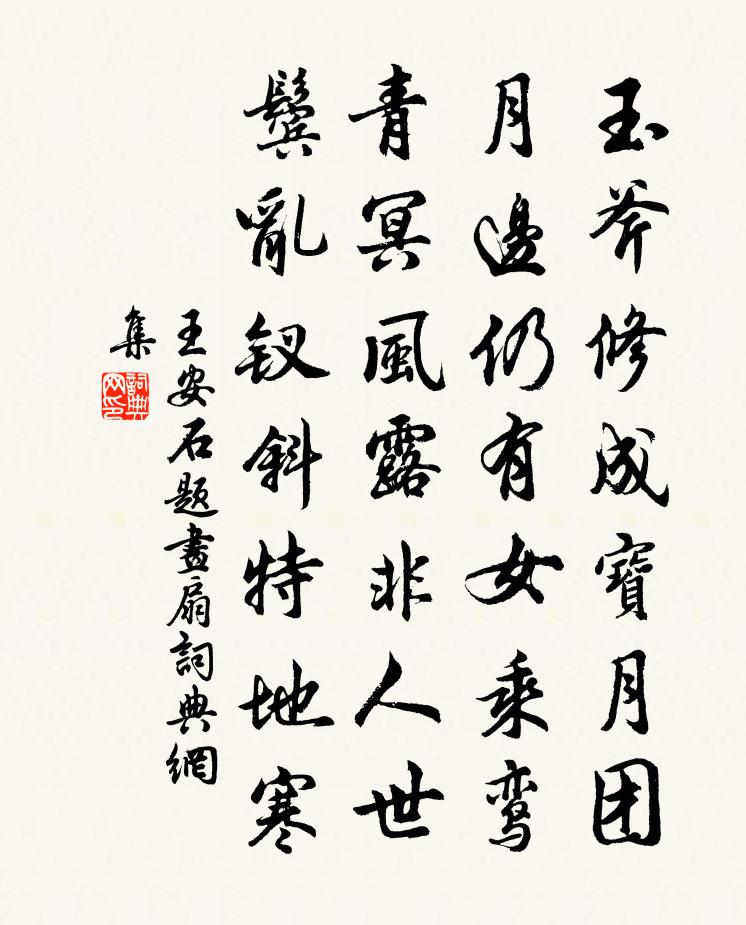 玉斧修成寶月团
月邊仍有女乘鸾
青冥風露非人世
鬓亂钗斜特地寒
王安石题畫扇詞典網
集
詞典网印